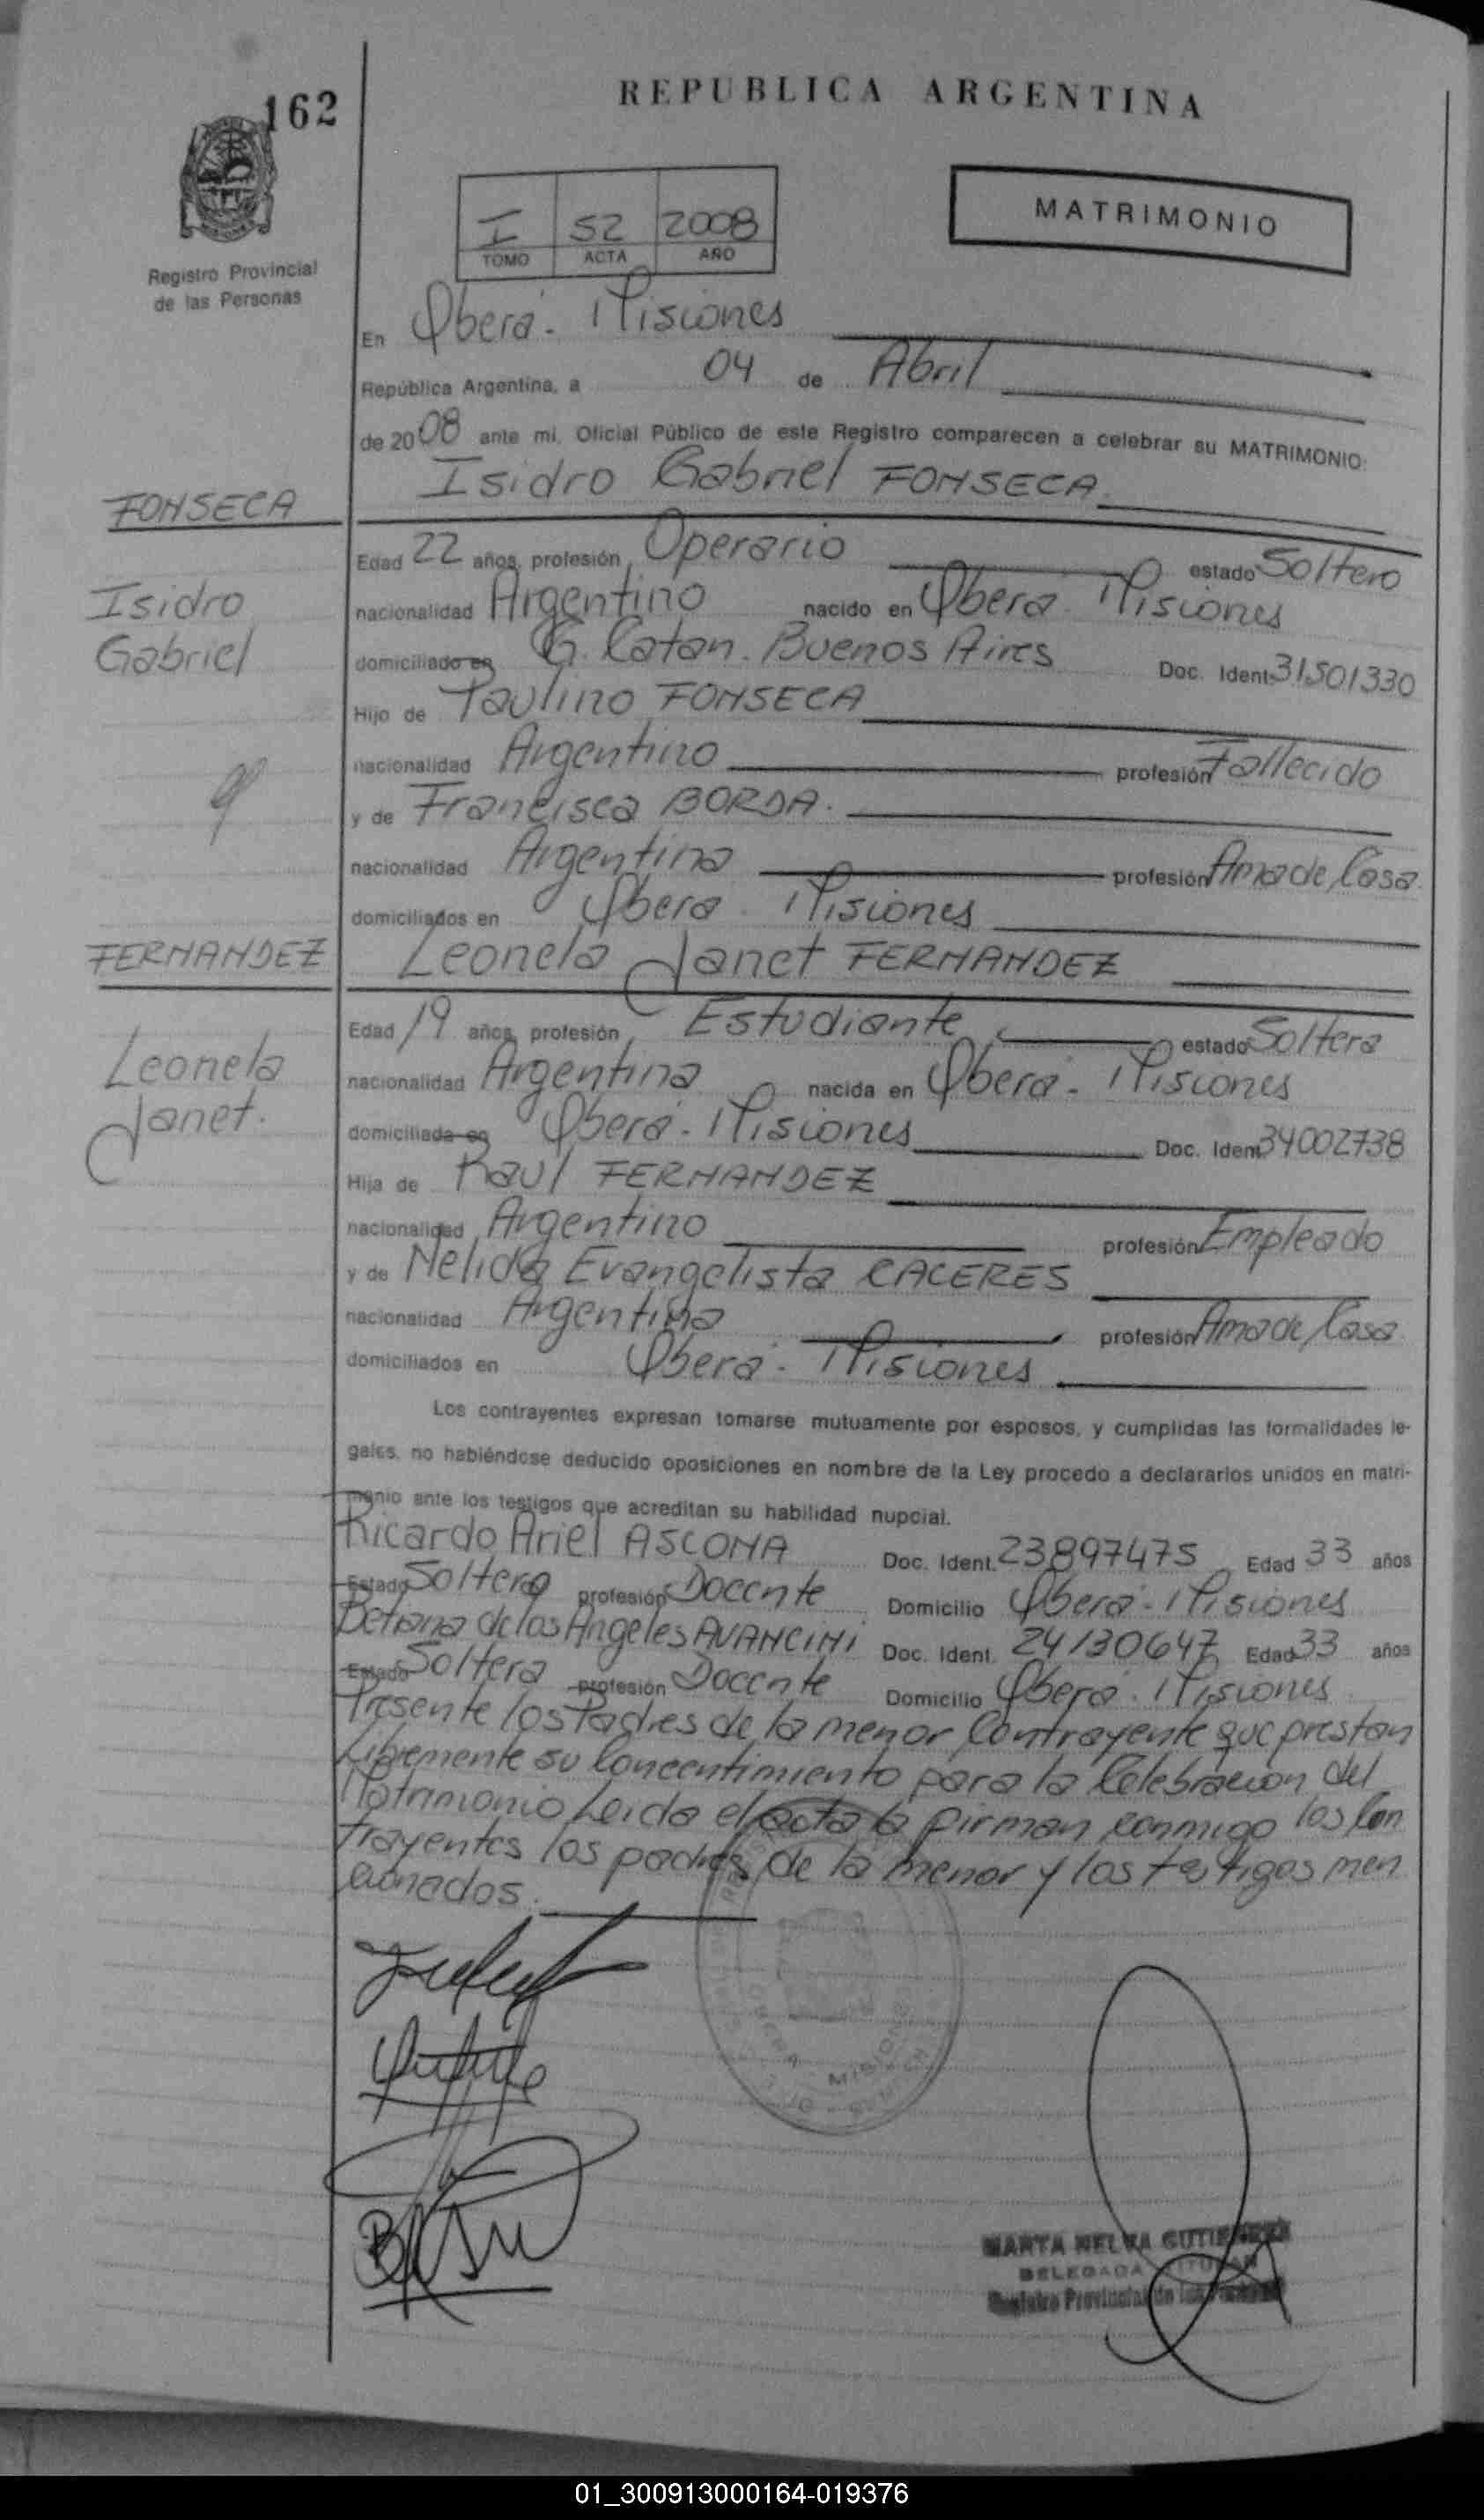 162
REPUBLICA ARGENTINA
MATRIMONIO
I 52 2008
TOMO ACTA AÑO
Registro Provincial
de las Personas
En Oberá - Misiones
República Argentina, a 04 de Abril
de 2008 ante mi, Oficial Público de este Registro comparecen a celebrar su MATRIMONIO:
FONSECA Isidro Gabriel FONSECA
Edad 22 años, profesión Operario estado Soltero
Isidro nacionalidad Argentino nacido en Oberá Misiones
Gabriel domiciliado en G. Catan. Buenos Aires Doc. Ident. 31501330
Hijo de Paulino FONSECA
nacionalidad Argentino profesión Fallecido
y de Francisca BORDA.
nacionalidad Argentina profesión Ama de Casa
domiciliados en Oberá Misiones
FERNANDEZ Leonela Janet FERNANDEZ
Edad 19 años, profesión Estudiante estado Soltera
Leonela nacionalidad Argentina nacida en Oberá - Misiones
Janet. domiciliada en Oberá - Misiones Doc. Ident. 34002738
Hija de Raul FERNANDEZ
nacionalidad Argentino profesión Empleado
y de Nelida Evangelista CACERES
nacionalidad Argentina profesión Ama de Casa
domiciliados en Oberá - Misiones
Los contrayentes expresan tomarse mutuamente por esposos, y cumplidas las formalidades le-
gales, no habiéndose deducido oposiciones en nombre de la Ley procedo a declararlos unidos en matri-
monio ante los testigos que acreditan su habilidad nupcial.
Ricardo Ariel ASCONA Doc. Ident. 23897475 Edad 33 años
Estado Soltero profesión Docente Domicilio Oberá - Misiones
Betiana de los Angeles AVANCINI Doc. Ident. 24130647 Edad 33 años
Estado Soltera profesión Docente Domicilio Oberá. Misiones
Presente los Padres de la menor Contrayente que prestan
Libremente su Concentimiento para la Celebración del
Matrimonio Leida el acta la firman conmigo los Con
trayentes los padres de la menor y los testigos men
cionados.
OBERA MISIONES
MARTA NELVA GUTIERREZ
DELEGADA TITULAR
Registro Provincial de las Personas
01_300913000164-019376